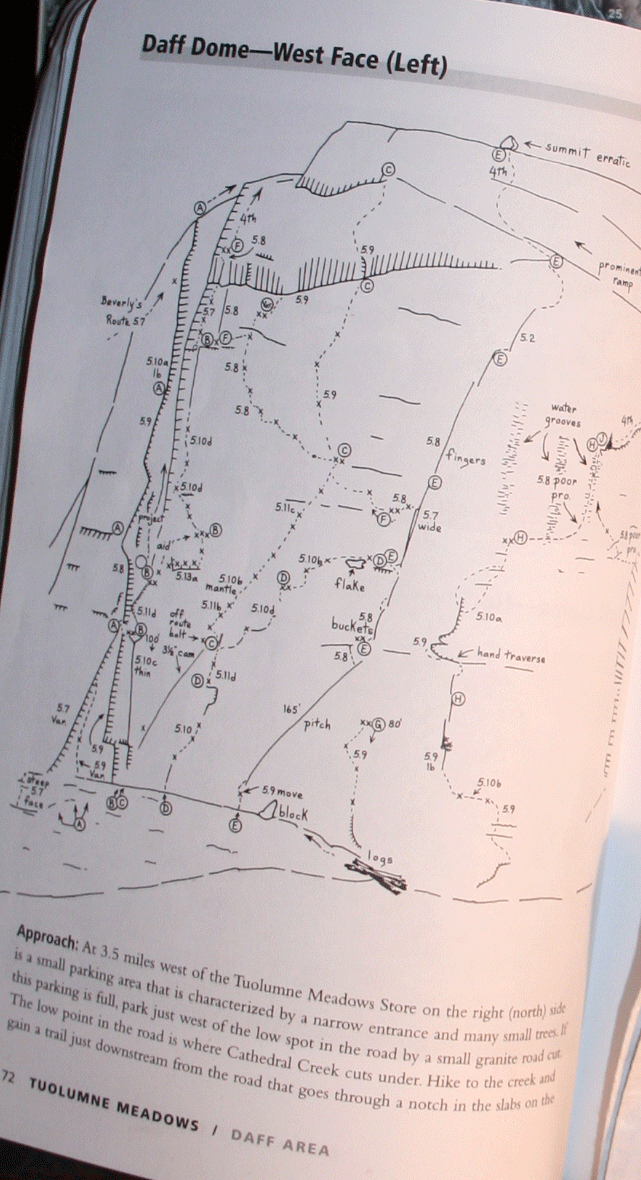 25
Daff Dome—West Face (Left)
E
summit erratic
C
4th
A
4th
5.8
F
5.9
E
prominent
ramp
C
5.9
Beverly's
Route 5.7
5.7
5.8
B F
5.2
E
5.8
5.10a
1b
A
5.9
5.9
5.8
water
grooves
4th
5.10d
5.8
fingers
H J
C
5.8 poor
pro.
5.10d
E
5.11c
5.8
5.7
wide
F
project
A
aid
B
H
5.8 poor
pro.
5.8
B
5.13a
5.10b
D E
flake
5.10b
mantle
D
5.11d
off
route
bolt
5.11b
5.10d
5.8
buckets
5.10a
A
B
100'
3½" cam
C
E
5.9
hand traverse
5.10c
thin
5.8
D
5.11d
H
5.7
Var.
165'
pitch
G 80'
5.9
5.9
Var.
5.10
5.9
5.9
1b
5.10b
5.9
steep
5.7
face
5.9 move
A
B C
D
E
block
logs
Approach: At 3.5 miles west of the Tuolumne Meadows Store on the right (north) side
is a small parking area that is characterized by a narrow entrance and many small trees. If
this parking is full, park just west of the low spot in the road by a small granite road cut.
The low point in the road is where Cathedral Creek cuts under. Hike to the creek and
gain a trail just downstream from the road that goes through a notch in the slabs on the
72 TUOLUMNE MEADOWS / DAFF AREA